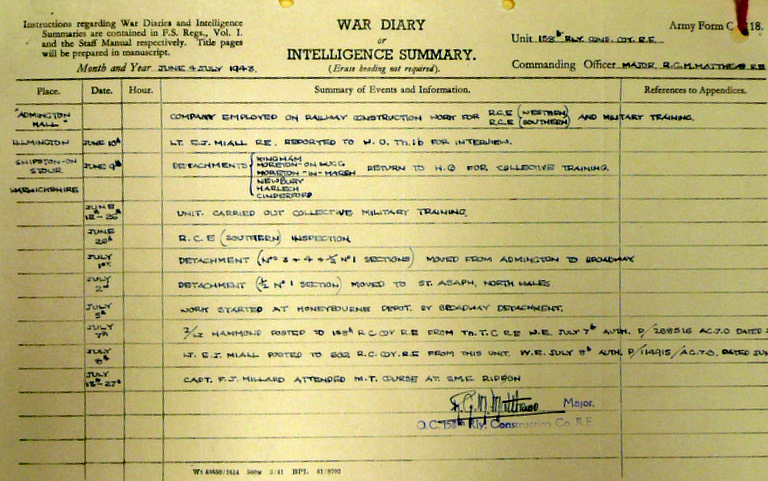 Instructions regarding War Diaries and Intelligence
Summaries are contained in F.S. Regs., Vol. I.
and the Staff Manual respectively. Title pages
will be prepared in manuscript.
Month and Year JUNE & JULY 1943.
WAR DIARY
or
INTELLIGENCE SUMMARY.
(Erase heading not required).
Army Form C 118.
Unit 158th RLY. CONS. COY. R.E.
Commanding Officer MAJOR. R.G.M. MATTHEWS R.E
Place. Date. Hour. Summary of Events and Information. References to Appendices.
"ADMINGTON HALL" COMPANY EMPLOYED ON RAILWAY CONSTRUCTION WORK FOR R.C.E (WESTERN)
R.C.E (SOUTHERN) AND MILITARY TRAINING.
ILMINGTON JUNE 10th LT. E.J. MIALL R.E. REPORTED TO W.O. Tn.1b FOR INTERVIEW.
SHIPSTON-ON STOUR. JUNE 9th DETACHMENTS KINGHAM
MORETON-ON-LUGG
MORETON-IN-MARSH RETURN TO H.Q FOR COLLECTIVE TRAINING.
NEWBURY
WARWICKSHIRE HARLECH
CINDERFORD
JUNE UNIT CARRIED OUT COLLECTIVE MILITARY TRAINING.
JUNE R.C.E (SOUTHERN) INSPECTION
JULY 1st DETACHMENT (Nos 3 + 4 + ½ No 1 SECTIONS) MOVED FROM ADMINGTON TO BROADWAY
JULY 2nd DETACHMENT (½ No 1 SECTION) MOVED TO ST. ASAPH, NORTH WALES
JULY 5th WORK STARTED AT HONEYBOURNE DEPOT. BY BROADWAY DETACHMENT.
JULY 7th 2/Lt HAMMOND POSTED TO 158th R.C COY R.E FROM Tn.T.C R.E W.E. JULY 7th AUTH. P/268516 AC.7.0 DATED
JULY 8th Lt. E.J. MIALL POSTED TO 602 R.C. COY. R.E FROM THIS UNIT. W.E. JULY 8th AUTH. P/114915/AC.7.0. DATED
JULY CAPT. F.J. MILLARD ATTENDED M.T. COURSE AT S.M.E. RIPON
R.G.M. Matthews Major.
O.C. 158th Rly. Construction Co. R.E.
Wt 48550/1614 560M 3/41 BPL 51/8792